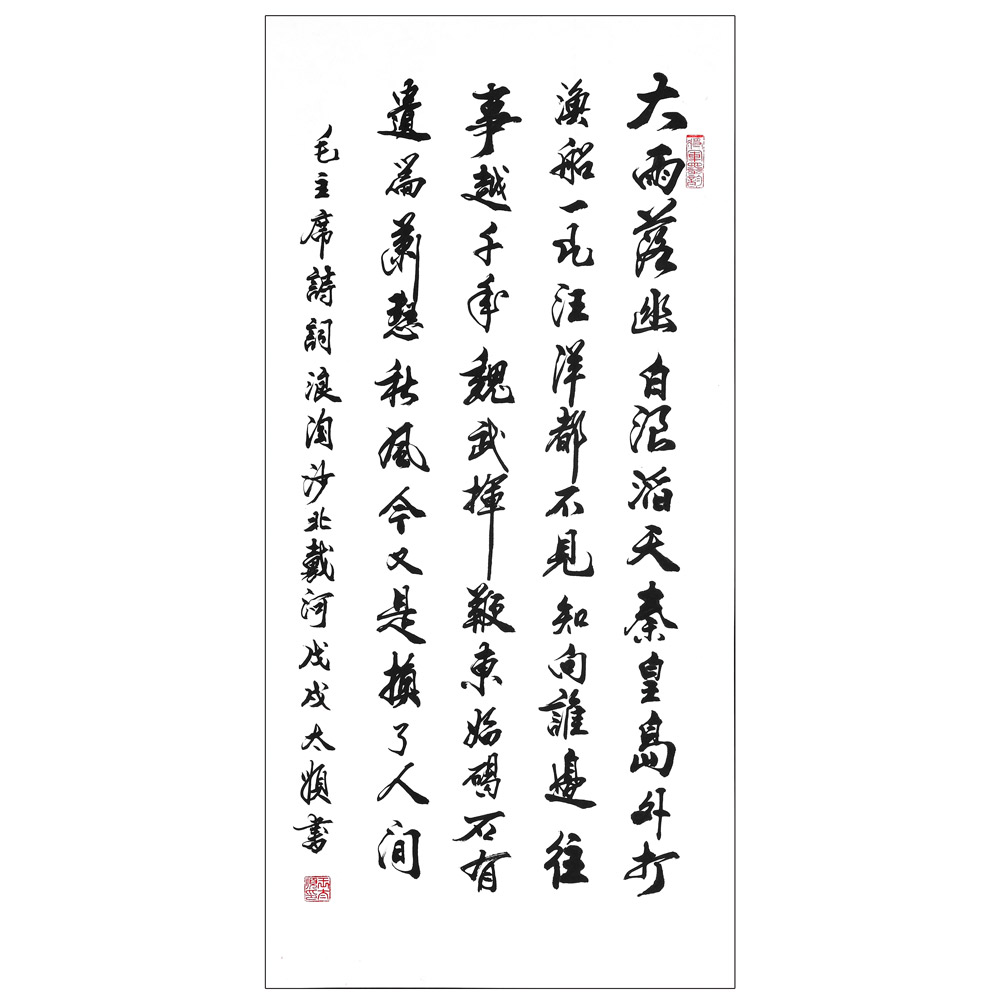 大雨落幽白浪滔天秦皇島外打
漁船一片汪洋都不見知向誰邊往
事越千年魏武揮鞭東臨碣石有
遺篇蕭瑟秋風今又是換了人間
毛主席詩詞浪淘沙北戴河戊戌太書